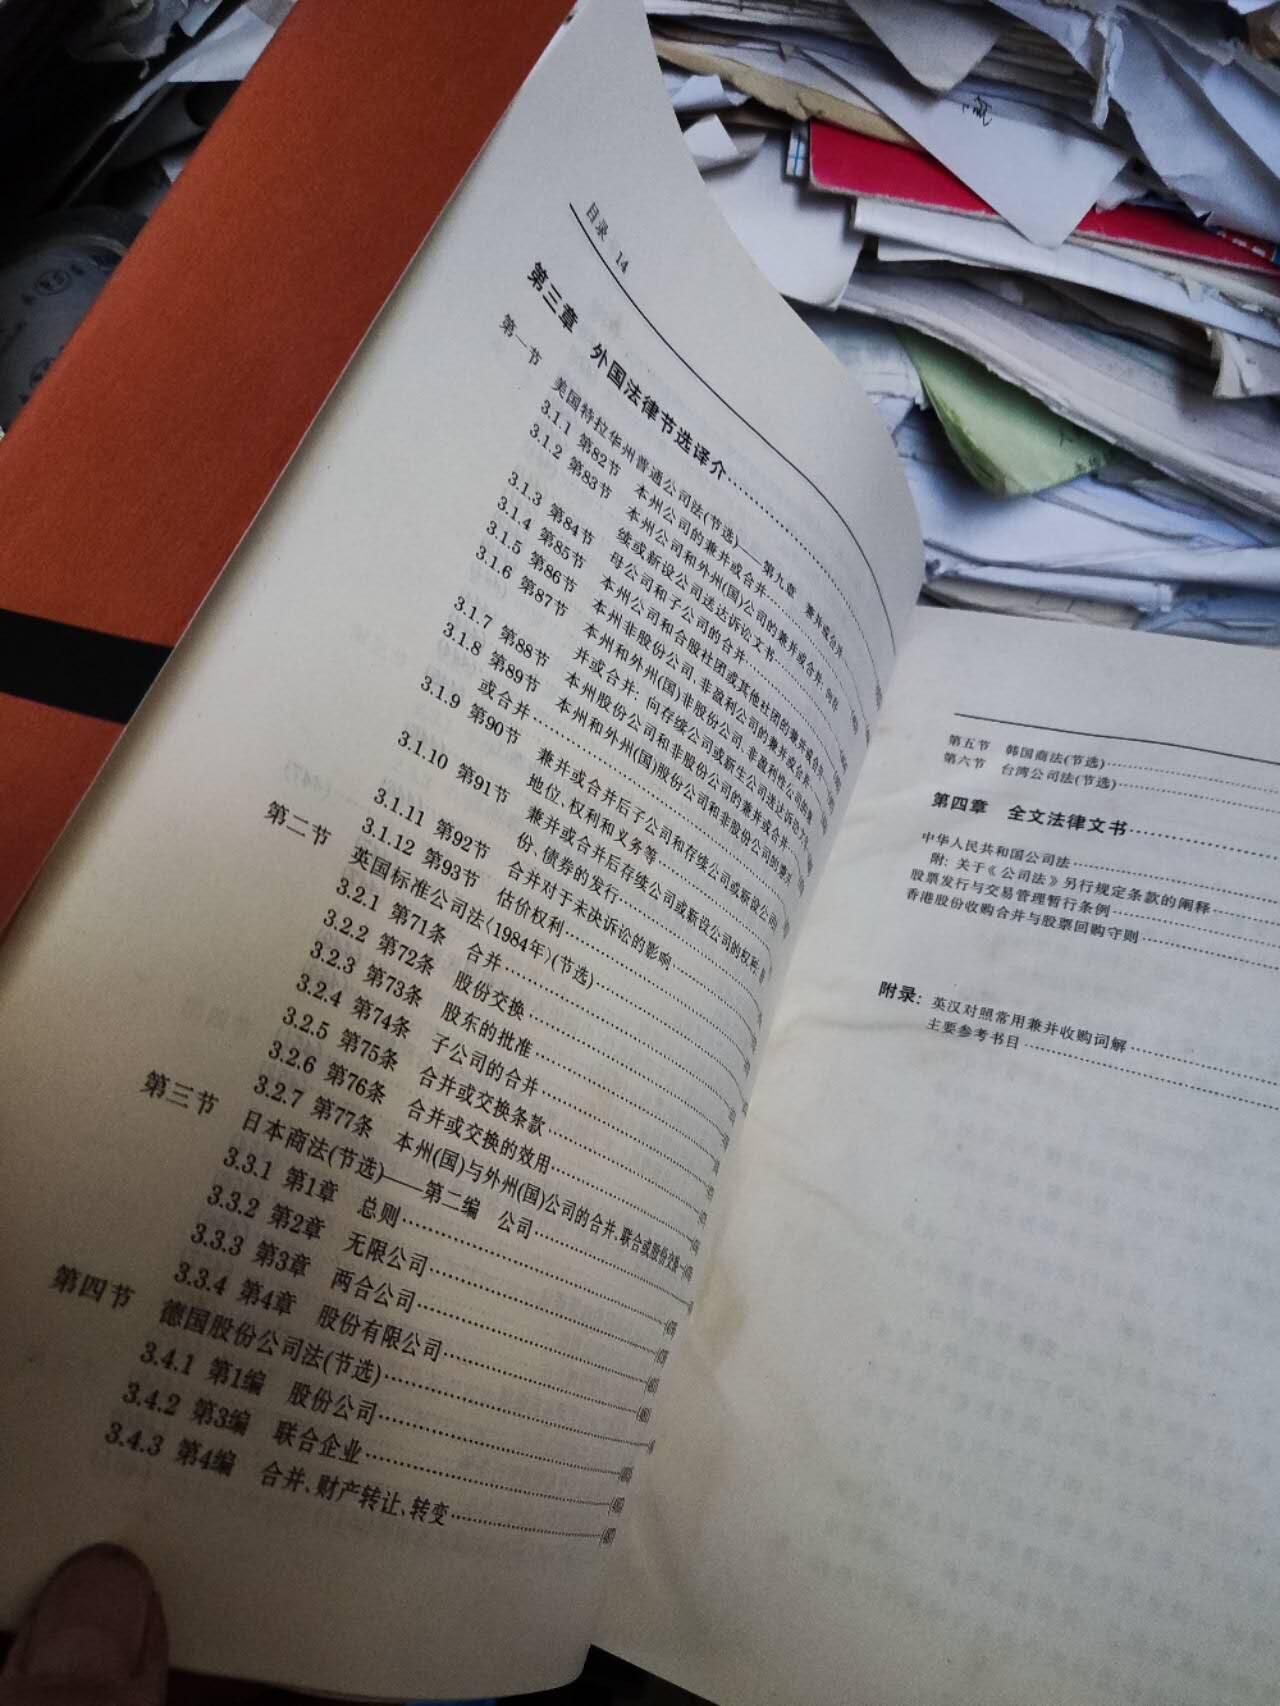 目录 14
第三章 外国法律节选译介
第一节 美国特拉华州普通公司法(节选)——第九章 兼并或合并
3.1.1 第82节 本州公司的兼并或合并
3.1.2 第83节 本州公司和外州(国)公司的兼并或合并
续或新设公司送达诉讼文书
3.1.3 第84节 母公司和子公司的合并
3.1.4 第85节 本州公司和合股社团或其他社团的兼并或合并
3.1.5 第86节 本州非股份公司、非盈利公司的兼并或合并
3.1.6 第87节 本州和外州(国)非股份公司、非盈利性公司的兼
并或合并；向存续公司或新生公司送达诉讼文书
3.1.7 第88节 本州股份公司和非股份公司的兼并或合并
3.1.8 第89节 本州和外州(国)股份公司和非股份公司的兼并
或合并
3.1.9 第90节 兼并或合并后子公司和存续公司或新设公司
地位、权利和义务等
3.1.10 第91节 兼并或合并后存续公司或新设公司的权利
份、债券的发行
3.1.11 第92节 合并对于未决诉讼的影响
3.1.12 第93节 估价权利
第二节 英国标准公司法〈1984年〉(节选)
3.2.1 第71条 合并
3.2.2 第72条 股份交换
3.2.3 第73条 股东的批准
3.2.4 第74条 子公司的合并
3.2.5 第75条 合并或交换条款
3.2.6 第76条 合并或交换的效用
3.2.7 第77条 本州(国)与外州(国)公司的合并、联合或股份交换
第三节 日本商法(节选)——第二编 公司
3.3.1 第1章 总则
3.3.2 第2章 无限公司
3.3.3 第3章 两合公司
3.3.4 第4章 股份有限公司
第四节 德国股份公司法(节选)
3.4.1 第1编 股份公司
3.4.2 第3编 联合企业
3.4.3 第4编 合并、财产转让、转变
第五节 韩国商法(节选)
第六节 台湾公司法(节选)
第四章 全文法律文书
中华人民共和国公司法
附: 关于《公司法》另行规定条款的阐释
股票发行与交易管理暂行条例
香港股份收购合并与股票回购守则
附录: 英汉对照常用兼并收购词解
主要参考书目